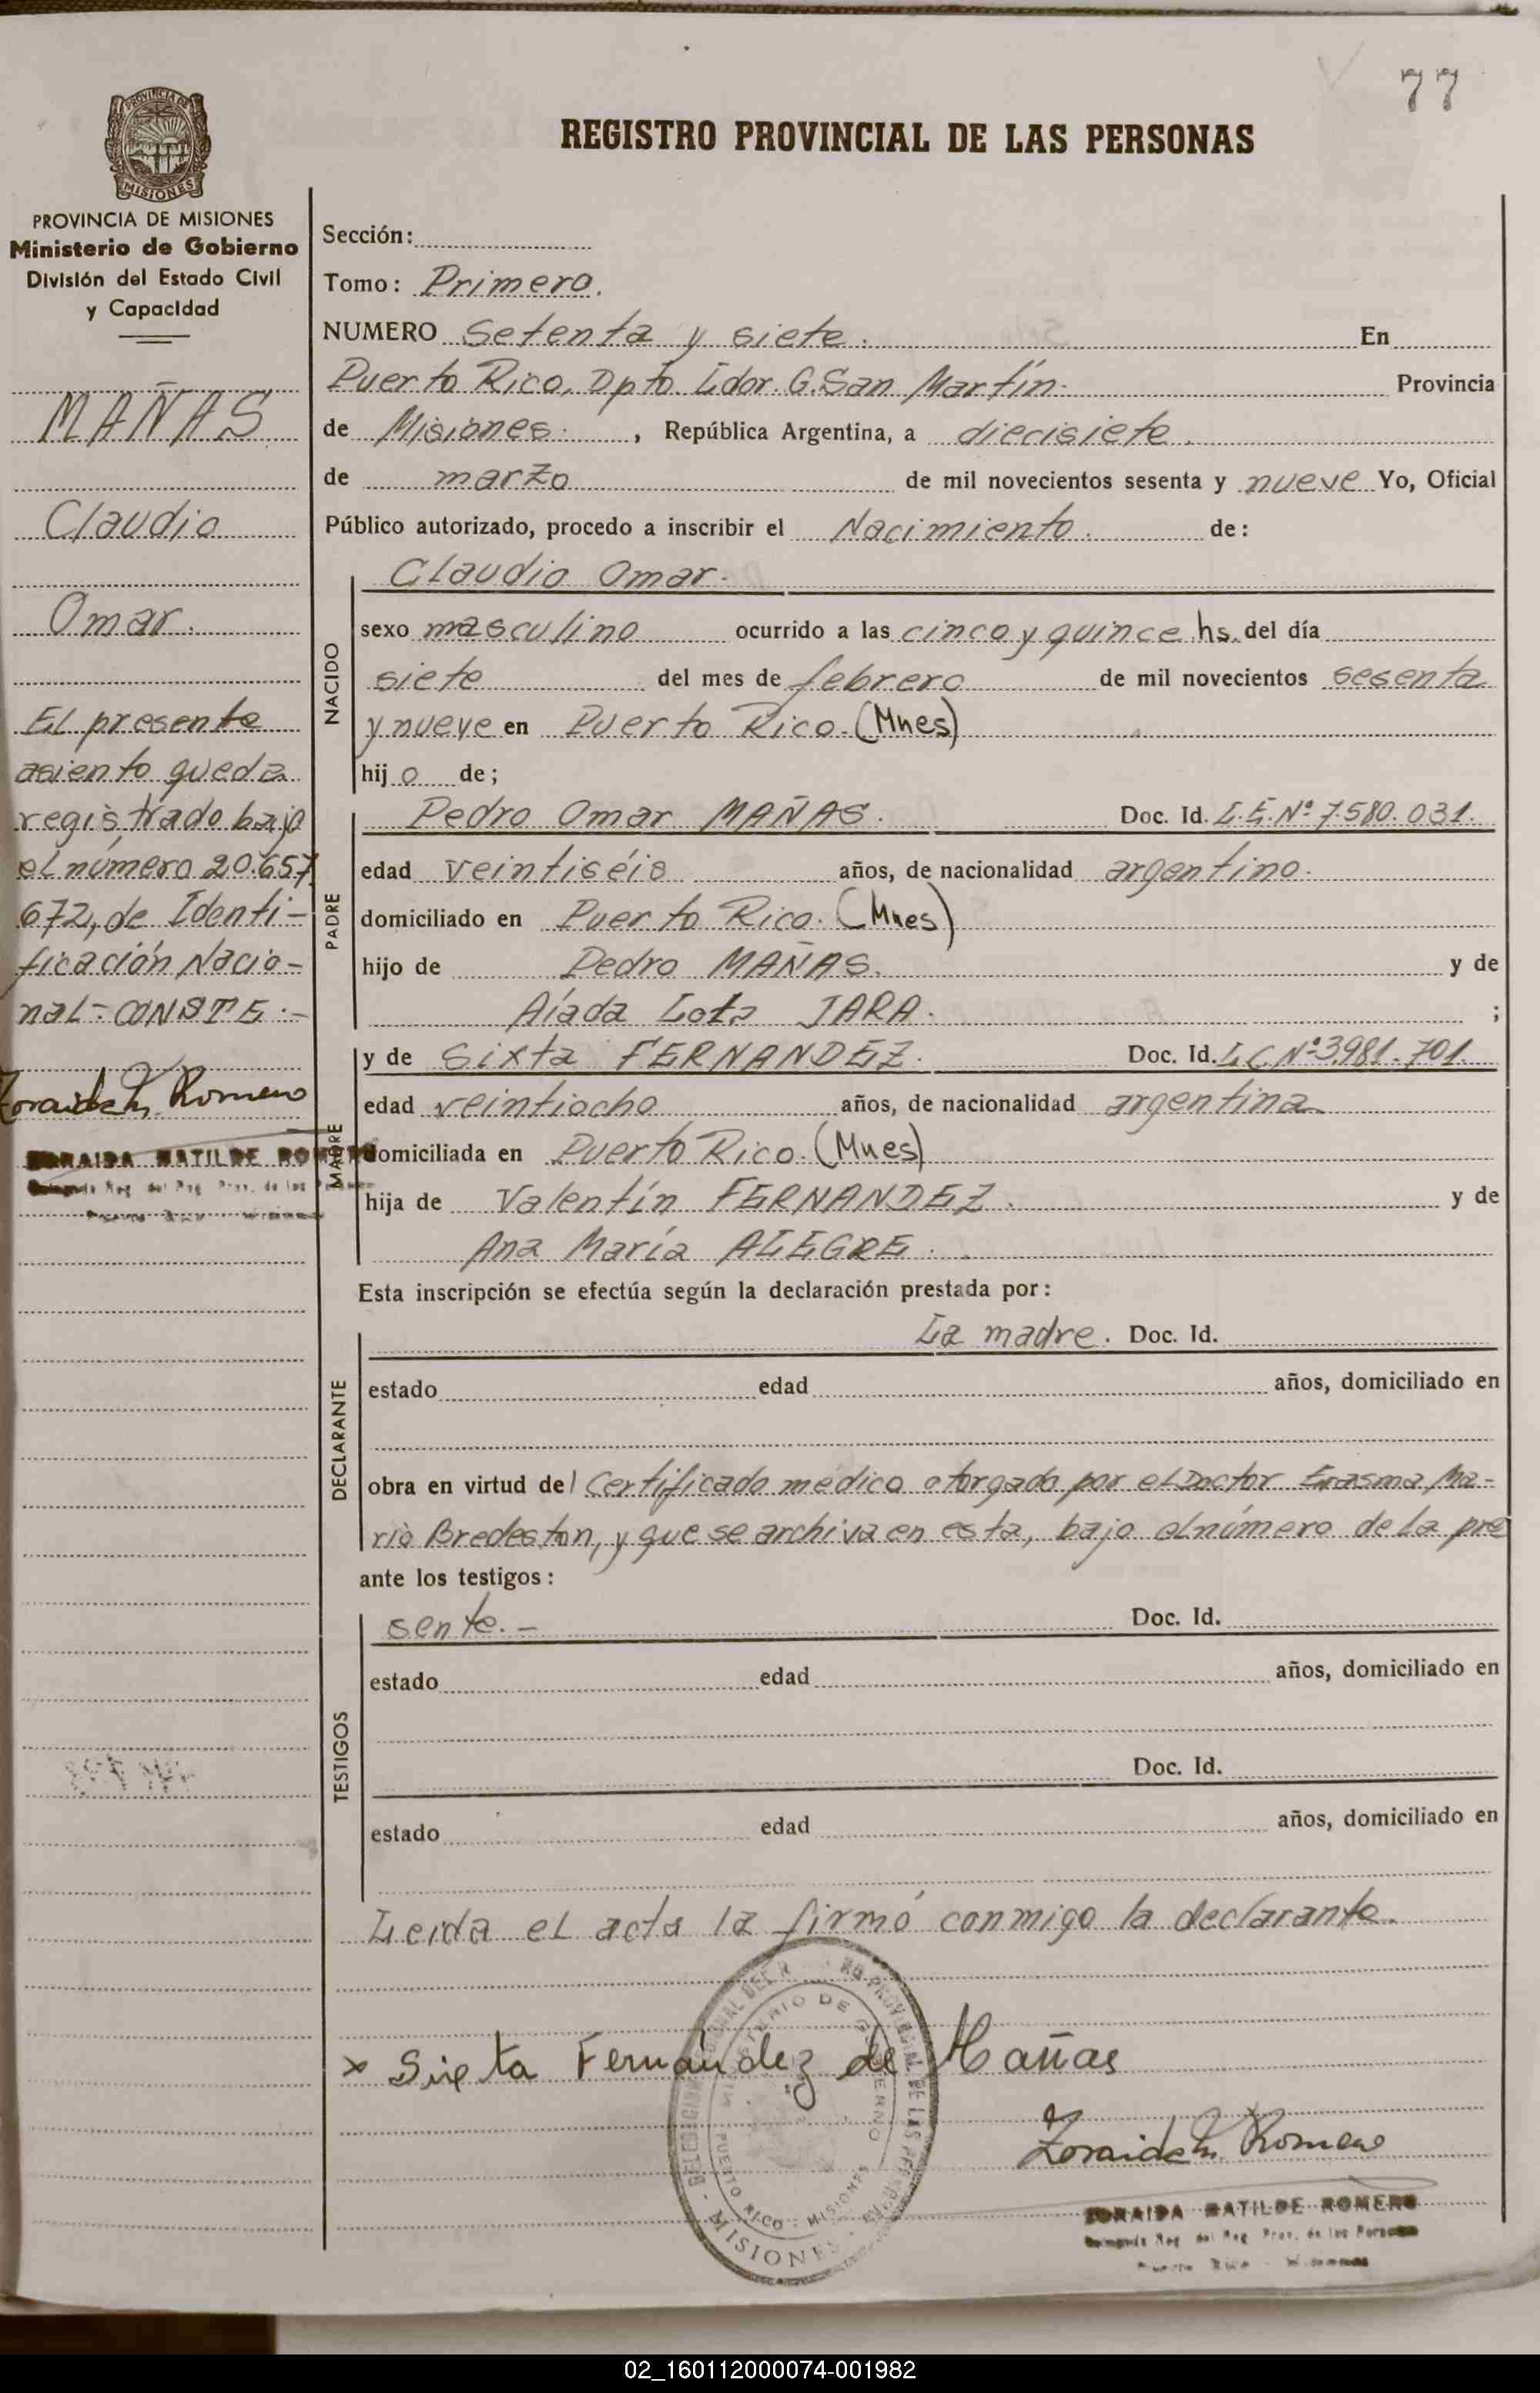 77
PROVINCIA DE
MISIONES
REGISTRO PROVINCIAL DE LAS PERSONAS
PROVINCIA DE MISIONES
Ministerio de Gobierno
División del Estado Civil
y Capacidad
MAÑAS
Claudio
Omar.
El presente
asiento queda
registrado bajo
el número 20.657.
672, de Identi-
ficación Nacio-
nal - CONSTE.-
Zoraida M. Romero
ZORAIDA MATILDE ROMERO
Sección:
Tomo: Primero.
NUMERO Setenta y siete. En
Puerto Rico, Dpto. Ldor. G. San Martín. Provincia
de Misiones. , República Argentina, a diecisiete.
de marzo de mil novecientos sesenta y nueve Yo, Oficial
Público autorizado, procedo a inscribir el Nacimiento. de:
NACIDO
Claudio Omar.
sexo masculino ocurrido a las cinco y quince hs. del día
siete del mes de febrero de mil novecientos sesenta
y nueve en Puerto Rico. (Mnes)
hijo de;
PADRE
Pedro Omar MAÑAS. Doc. Id. L.E. Nº 7.580.031.
edad veintiséis años, de nacionalidad argentino.
domiciliado en Puerto Rico. (Mnes)
hijo de Pedro MAÑAS. y de
Aíada Lota JARA. ;
MADRE
y de Sixta FERNANDEZ. Doc. Id. L.C. Nº 3.981.701.
edad veintiocho años, de nacionalidad argentina
domiciliada en Puerto Rico. (Mnes)
hija de Valentín FERNANDEZ. y de
Ana María ALEGRE.
Esta inscripción se efectúa según la declaración prestada por:
DECLARANTE
La madre. Doc. Id.
estado edad años, domiciliado en
obra en virtud del Certificado médico otorgado por el Doctor Erasmo Ma-
rio Bredeston, y que se archiva en esta, bajo el número de la pre
ante los testigos:
TESTIGOS
sente.- Doc. Id.
estado edad años, domiciliado en
Doc. Id.
estado edad años, domiciliado en
Leída el acta la firmó conmigo la declarante.
x Sixta Fernández de Mañas
MINISTERIO DE GOBIERNO
PUERTO RICO - MISIONES
MISIONES
Zoraida M. Romero
ZORAIDA MATILDE ROMERO
Reg. del Reg. Prov. de las Personas
Puerto Rico - Misiones
02_160112000074-001982